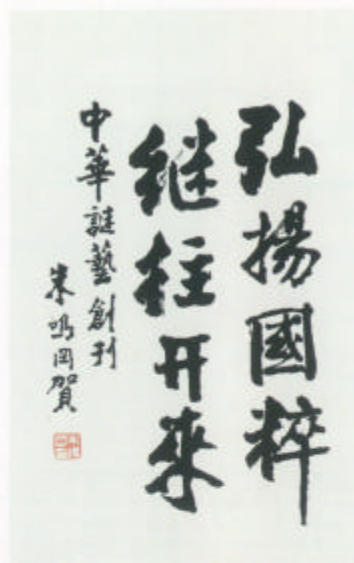 弘揚國粹
继往开来
中華謎藝創刊
朱鸣岡賀